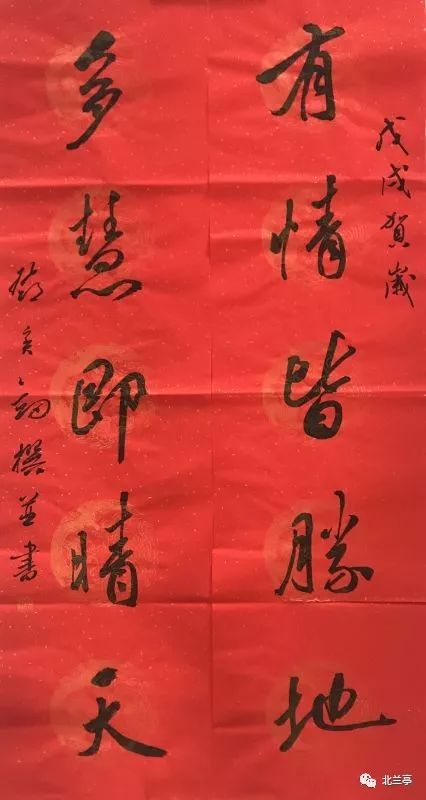 戊戌賀歲
有情皆勝地
多慧即晴天
撰並書
北兰亭